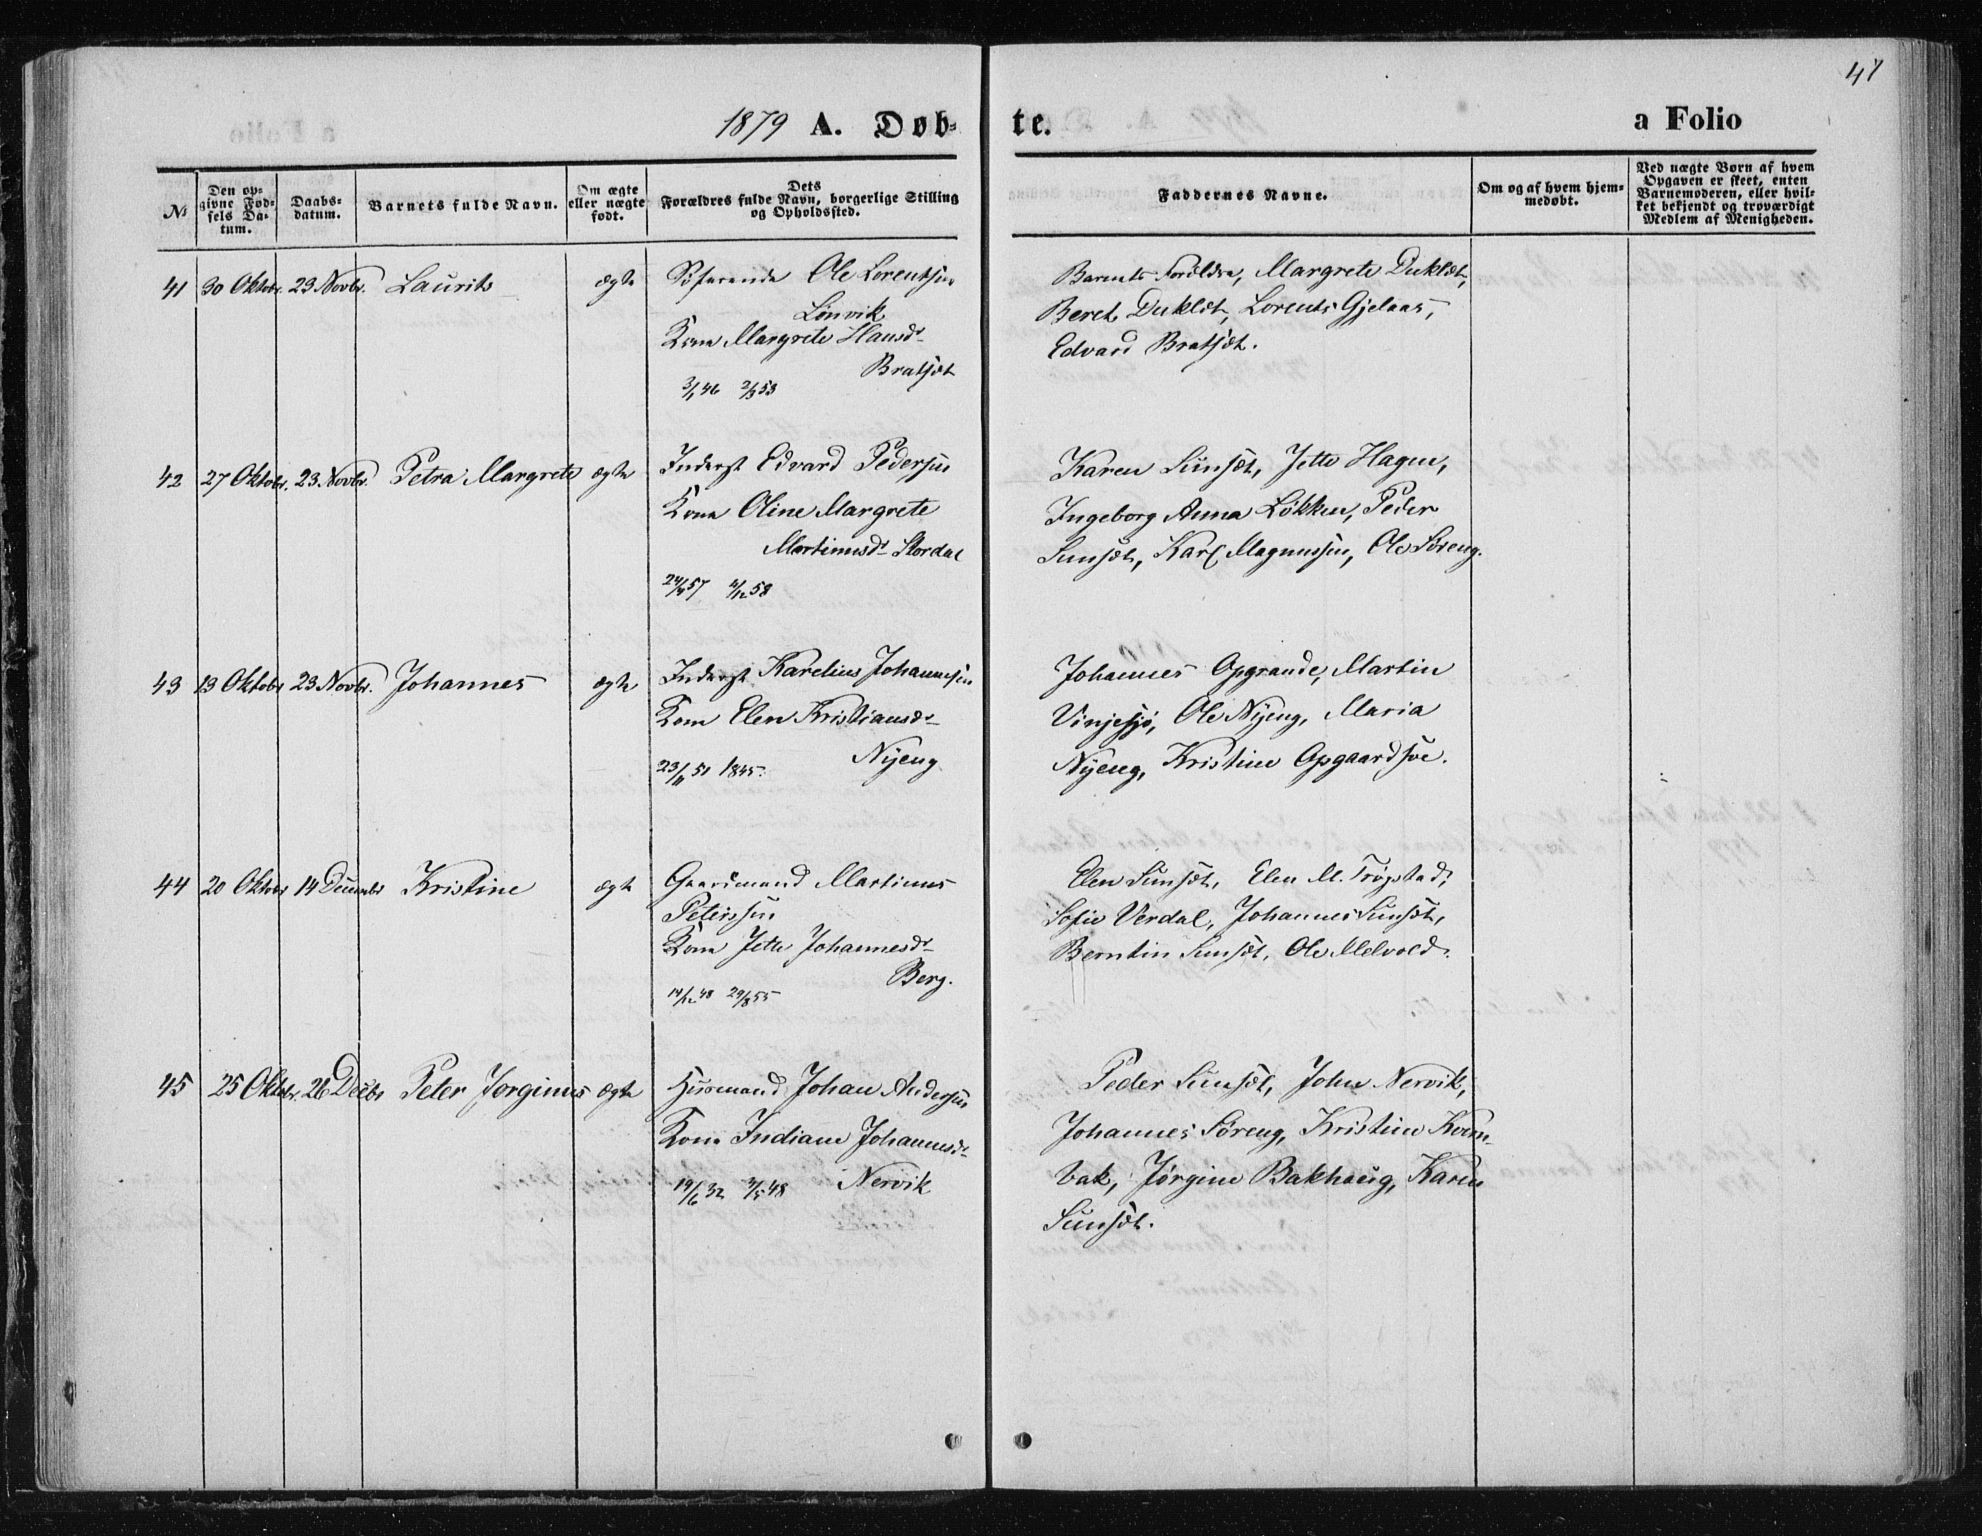 47
1879 A. Døb-
te.
a Folio
No
Den op-
givne Fød-
sels Da-
tum.
Daabs-
datum.
Barnets fulde Navn.
Om ægte
eller nægte
født.
Dets
Forældres fulde Navn, borgerlige Stilling
og Opholdssted.
Faddernes Navne.
Om og af hvem hjem-
medøbt.
Ved uægte Børn af hvem
Opgaven er skeet, enten
Barnemoderen, eller hvil-
ket bekjendt og troværdigt
Medlem af Menigheden.
41 30 Oktobr. 23 Novbr. Laurits ægte Søfarende Ole Lorentsen
Lønvik
Kone Margrete Hansdr
Bratsæt
3/1 46 2/3 53
Barnets Forældre, Margrete Duklæt,
Beret Duklæt, Lorents Gjelaas,
Edvard Bratsæt.
42 27 Oktobr. 23 Novbr. Petra Margrete ægte Inderst Edvard Pedersen
Kone Oline Margrete
Martinusdr Stordal
57 58
Karen Sunsæt, Jette Hagen,
Ingeborg Anna Løkken, Peder
Sunsæt, Karl Magnussen, Ole Søreng.
43 13 Oktobr 23 Novbr. Johannes ægte Inderst Karelius Johannesen
Kone Elen Kristiansdr
Nyeng
23/11 51 1845.
Johannes Opgrande, Martin
Vinjesjø, Ole Nyeng, Maria
Nyeng, Kristine Opgaardsve.
44 20 Oktobr 14 Decembr Kristine ægte Gaardmand Martinus
Peterssen
Kone Jette Johannesdr
Berg.
14/12 48 29/8 55
Elen Sunsæt, Elen M. Trøgstad,
Sofie Verdal, Johannes Sunsæt,
Berntin Sunsæt, Ole Melvold.
45 25 Oktobr. 26 Decbr Peter Jørginus ægte Husmand Johan Andersen
Kone Indiane Johannesdr
Nervik
19/6 32 48
Peder Sunsæt, John Nervik,
Johannes Søreng, Kristine Kvern-
bak, Jørgine Bakhaug, Karen
Sunsæt.